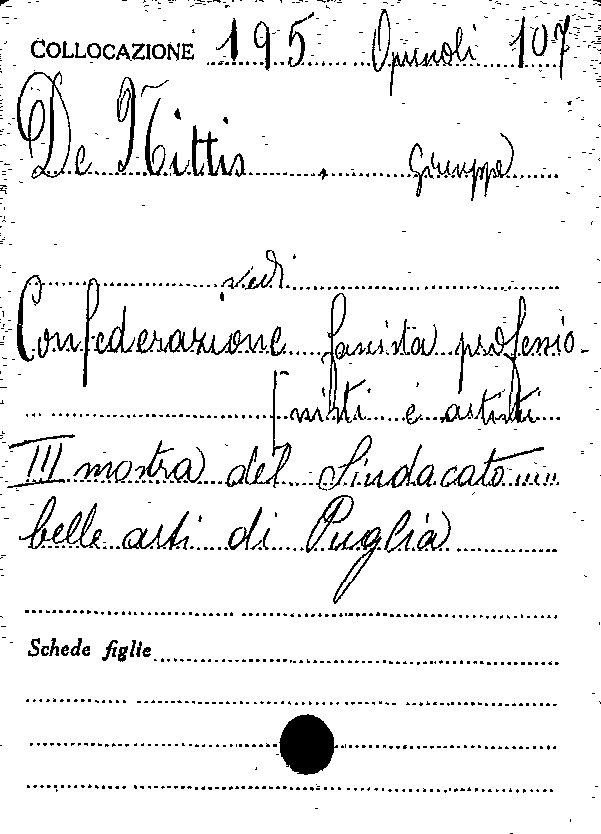 COLLOCAZIONE 195 Opuscoli 107
De Nittis, Giuseppe
vedi
Confederazione fascista professio-
[nisti e artisti
III mostra del Sindacato.....
belle arti di Puglia
Schede figlie